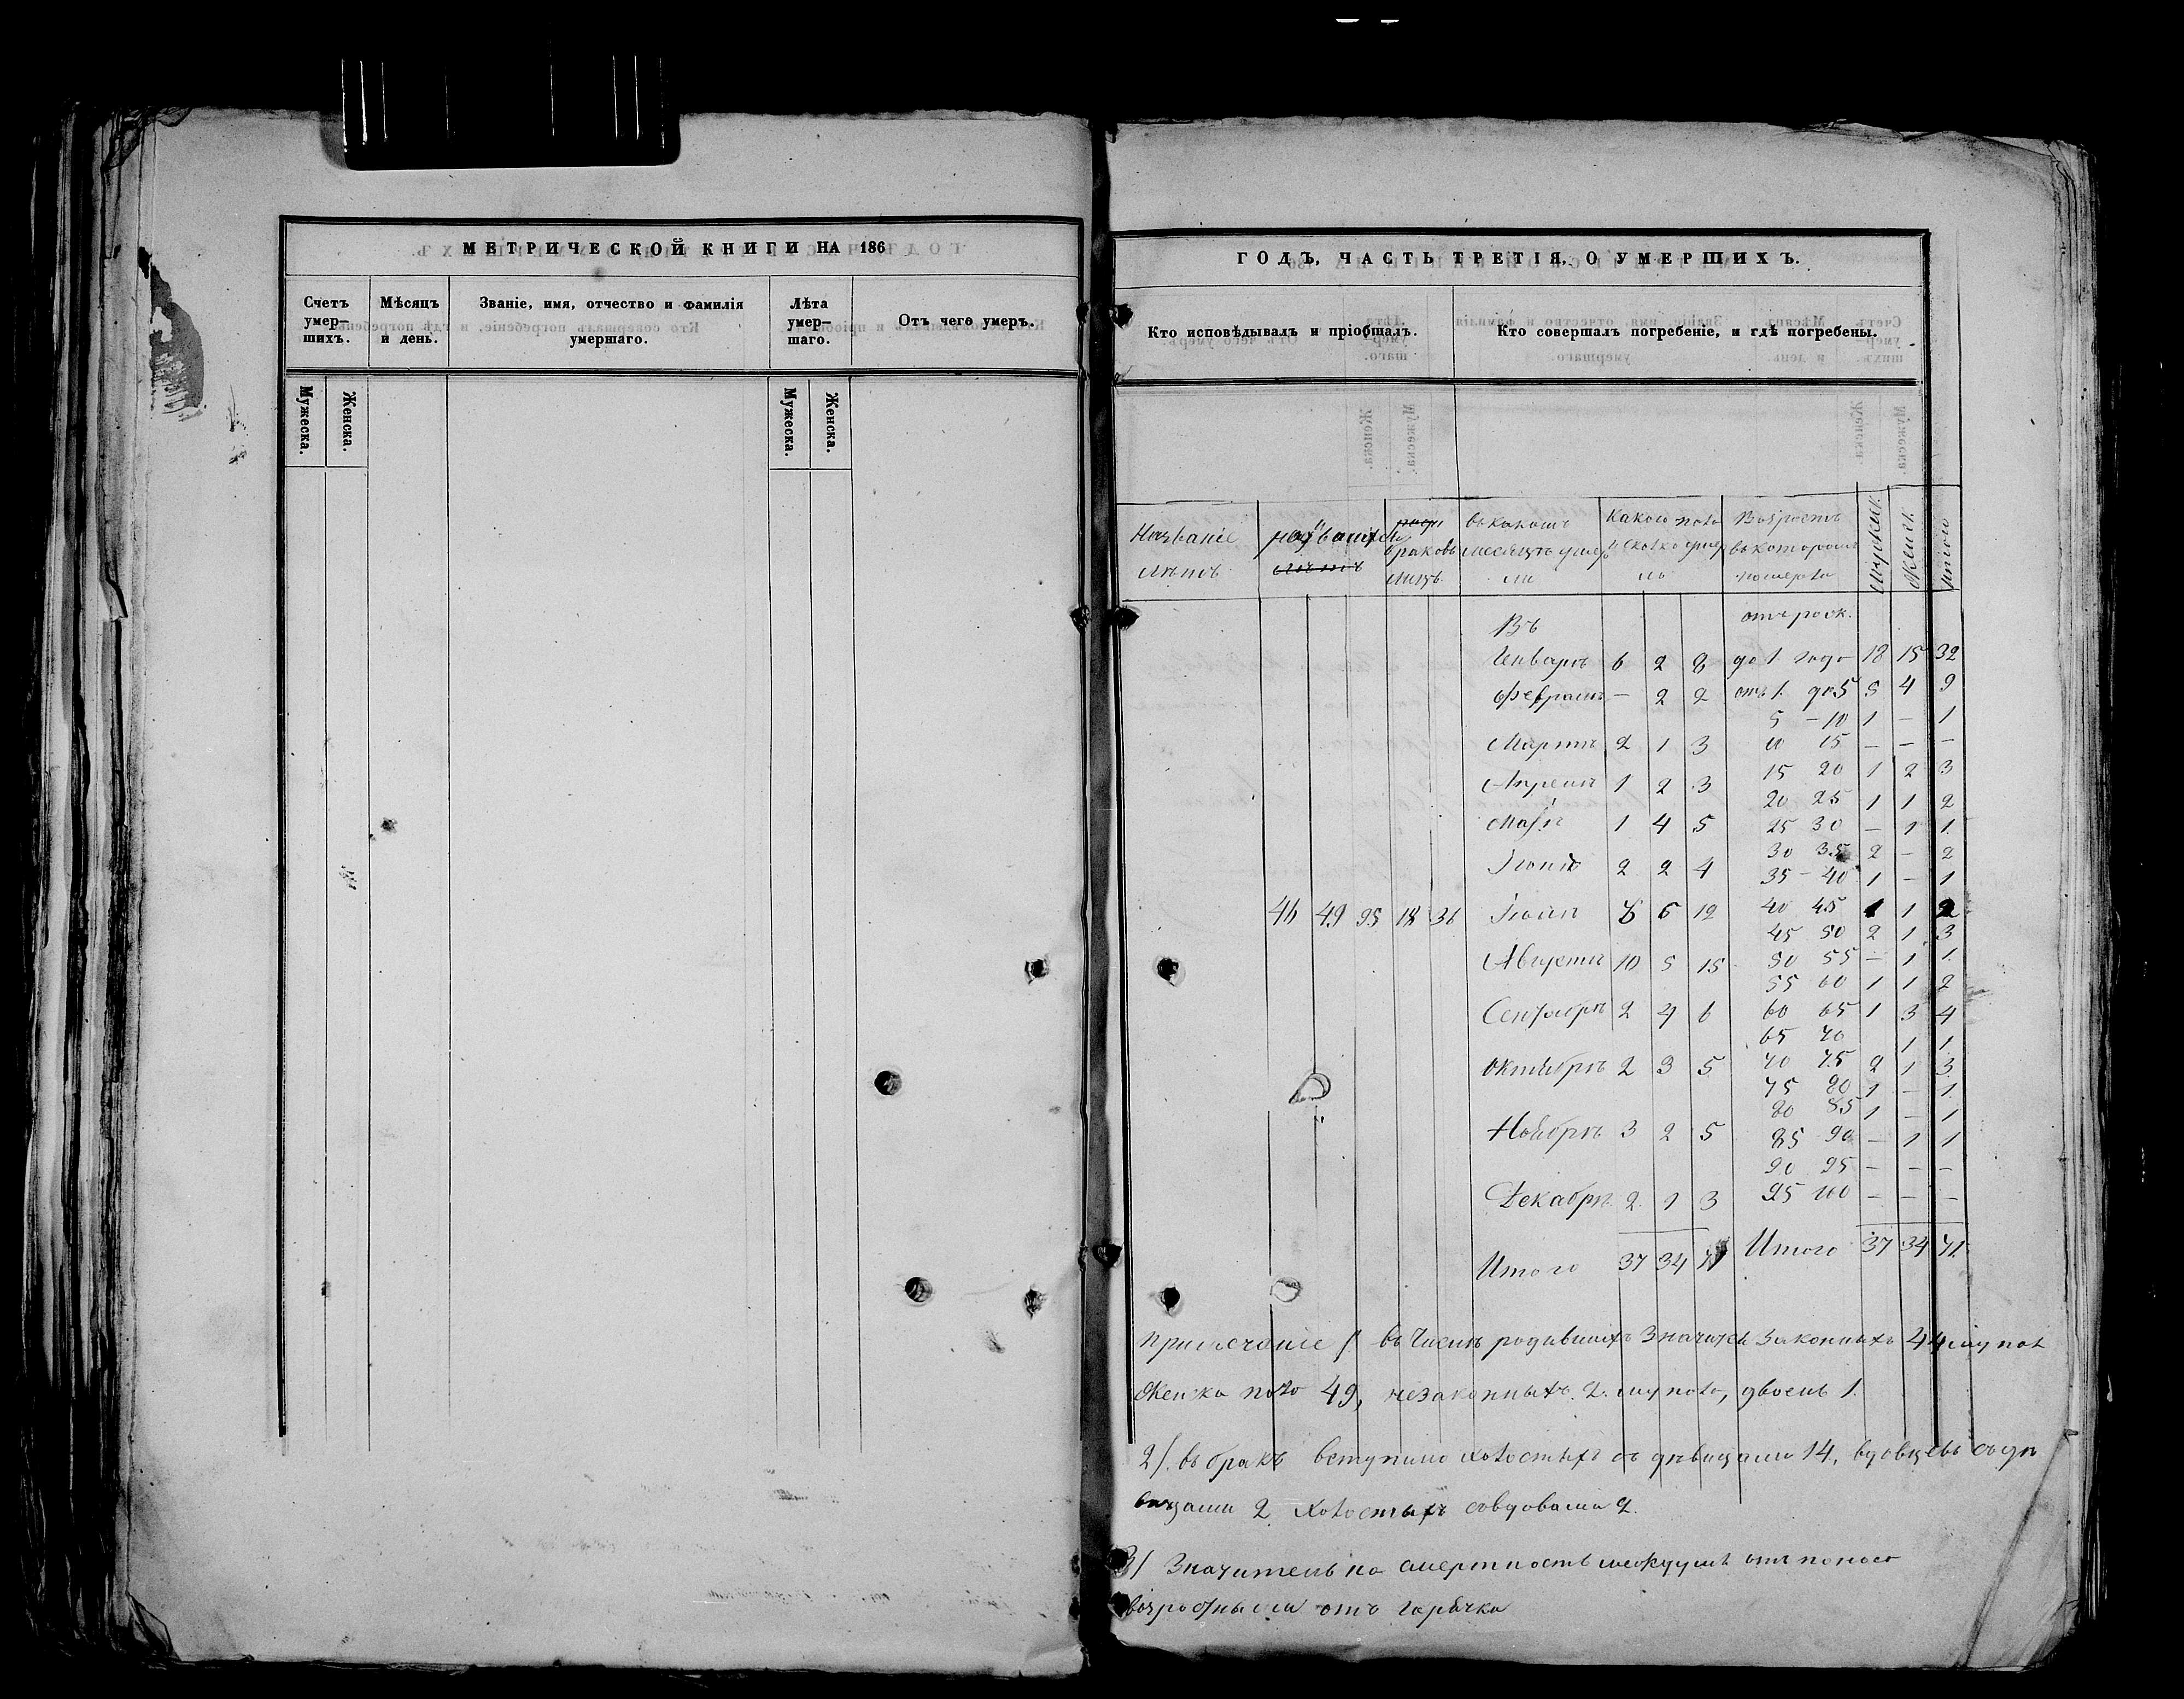 МЕТРИЧЕСКОЙ КНИГИ НА 186
Счетъ умер— шихъ. Мѣсяцъ и день. Званіе, имя, отчество и фамилія умершаго. Лѣта умер— шаго. Отъ чего умеръ.
Мужеска. Женска. Мужеска. Женска.
ГОДЪ, ЧАСТЬ ТРЕТІЯ, О УМЕРШИХЪ.
Кто исповѣдывалъ и пріобщалъ. Кто совершалъ погребеніе, и гдѣ погребены.
Названіе браковъ въ какомъ Какого пола Возрастъ
месяцѣ умер въ которомъ
ли померли
Мужеск. Женск. Итого
Въ отъ рож.
Генварѣ 6 2 8 до 1 года 18 15 32
Февралѣ — 2 2 отъ 1. до 5 5 4 9
5 — 10 1 — 1
Мартѣ 2 1 3 10 15 — — —
Апрелѣ 1 2 3 15 20 1 2 3
20 25 1 1 2
Маѣ 1 4 5 25 30 — 1 1
30 35 2 — 2
Іюнѣ 2 2 4 35 — 40 1 — 1
46 49 95 18 36 Іюлѣ 6 6 12 40 45 1 1 2
45 50 2 1 3
Августѣ 10 5 15 50 55 — 1 1
55 60 1 1 2
Сентябрѣ 2 4 6 60 65 1 3 4
65 70 1 1
Октябрѣ 2 3 5 70 75 2 1 3
75 80 1 — 1
80 85 1 — 1
Ноябрѣ 3 2 5 85 90 — 1 1
90 95 — — —
Декабрѣ 2 1 3 95 100 — — —
Итого 37 34 71 Итого 37 34 71
Примечаніе / въ числѣ родившихъ значится законныхъ 44 му пол
Женска пола 49, незаконныхъ 2. му пола, двоень 1.
2/. въ бракъ вступило холостыхъ съ дѣвицами 14, вдовцевъ съ дѣ
вицами 2 холостыхъ совдовами 2.
3/ Значительна смертность между отъ поноса
возростными отъ горячки